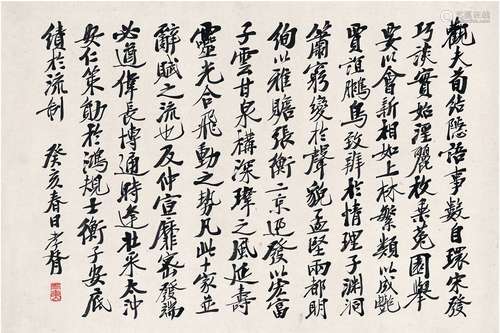 觀夫荀結隱語事數自環宋發
巧談實始淫麗枚乘菟園舉
要以會新相如上林繁類以成艷
賈誼鵩鳥致辨於情理子淵洞
簫窮變於聲貌孟堅兩都明
絢以雅贍張衡二京迅發以宏富
子雲甘泉構深瑋之風延壽
靈光含飛動之勢凡此十家並
辭賦之流也及仲宣靡密發端
必遒偉長博通時逢壯采太沖
安仁策勛於鴻規士衡子安底
績於流制 癸亥春日孝胥